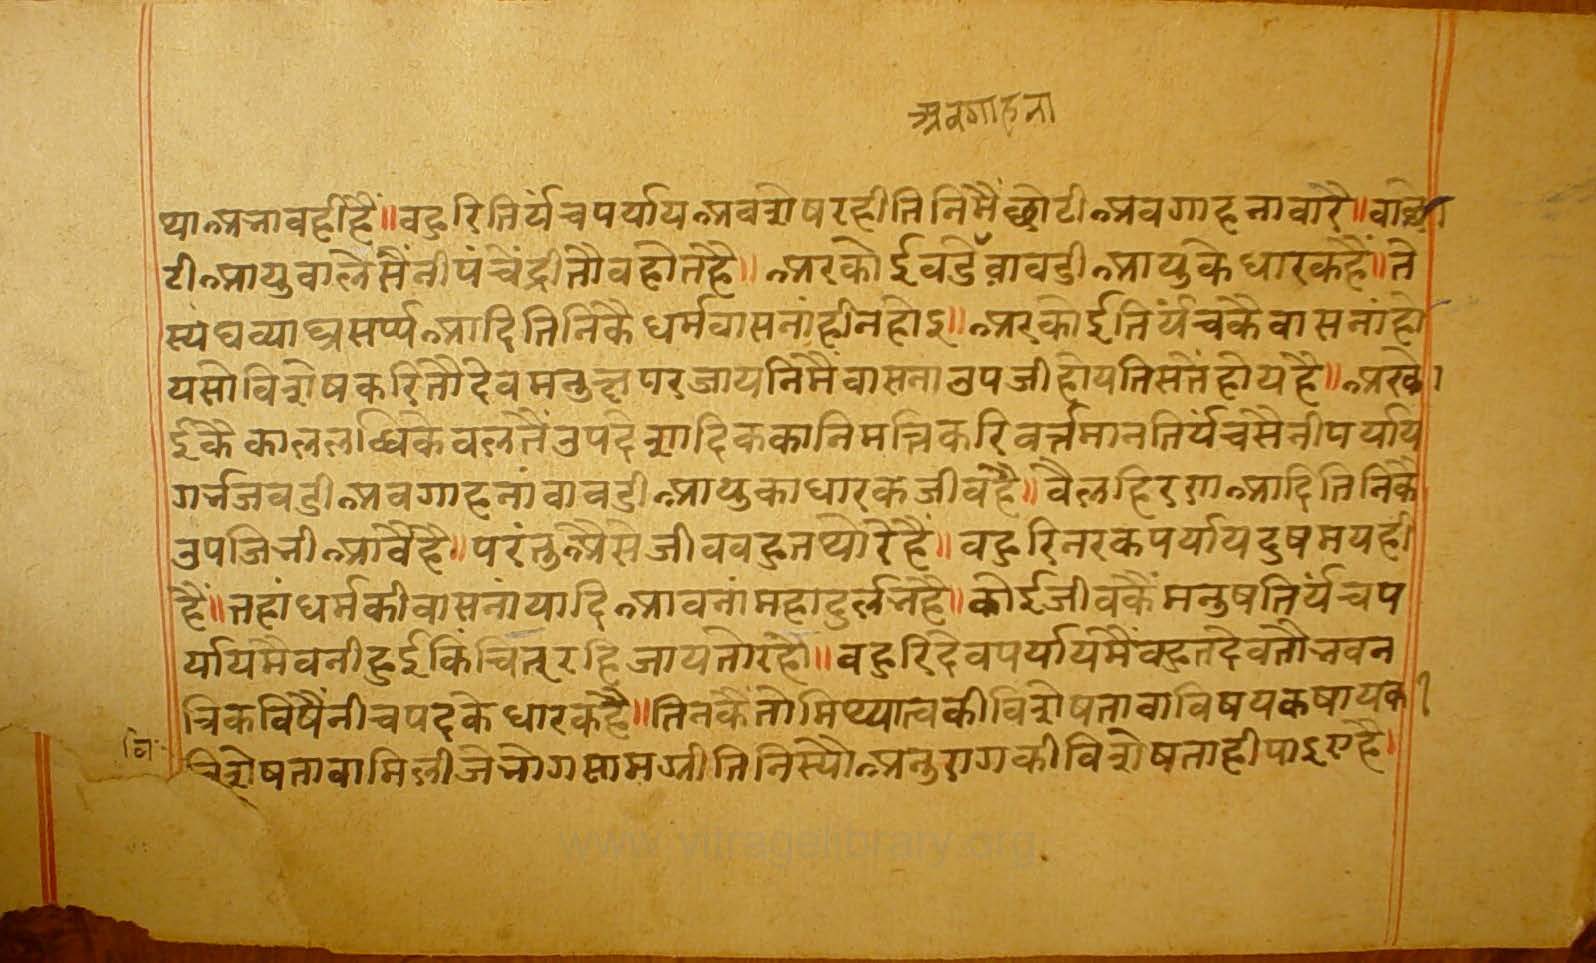 अवगाहना
थाअभावहीहैं॥वहुरितिर्यंचपर्यायअवशेषरहीतिनिमैंछोटीअवगाहनावारै॥वाछो
टीआयुवालेसैंनीपंचेंद्रीतौवहोतहै॥अरकोईवडेवावडीआयुकेधारकहैं॥ते
स्यंघव्याघ्रसर्प्पआदितिनिकैधर्मवासनांहीनहोइ॥अरकोईतिर्यंचकैवासनांहो
यसोविशेषकरितौदेवमनुछपरजायनिमैंवासनाउपजीहोयतिसतैंहोयहै॥अरको
ईकैकाललब्धिकेवलतैंउपदेशादिककानिमत्तिकरिवर्त्तमानतिर्यंचसैनीपर्याय
गर्भजवडीअवगाहनांवावडीआयुकाधारकजीवहै॥वैलहिरणआदितिनिकै
उपजिभीआवैहै॥परंतुअैसेजीववहुतथोरेहैं॥वहुरिनरकपर्यायदुषमयही
हैं॥तहांधर्मकीवासनांयादिआवनांमहादुर्लभहै॥कोईजीवकैंमनुषतिर्यंचप
र्यायमैवनीहुईकिंचित्‌रहिजायतोरहौ॥वहुरिदेवपर्यायमैंवहुतदेवतौभवन
त्रिकविषैंनीचपदकेधारकहै॥तिनकैंतोमिथ्यात्वकीविशेषतावाविषयकषायक
वि
विशेषतावामिलीजेभोगसामग्रीतिनिस्यौअनुरागकीविशेषताहीपाइएहै।
www.vitragelibrary.org